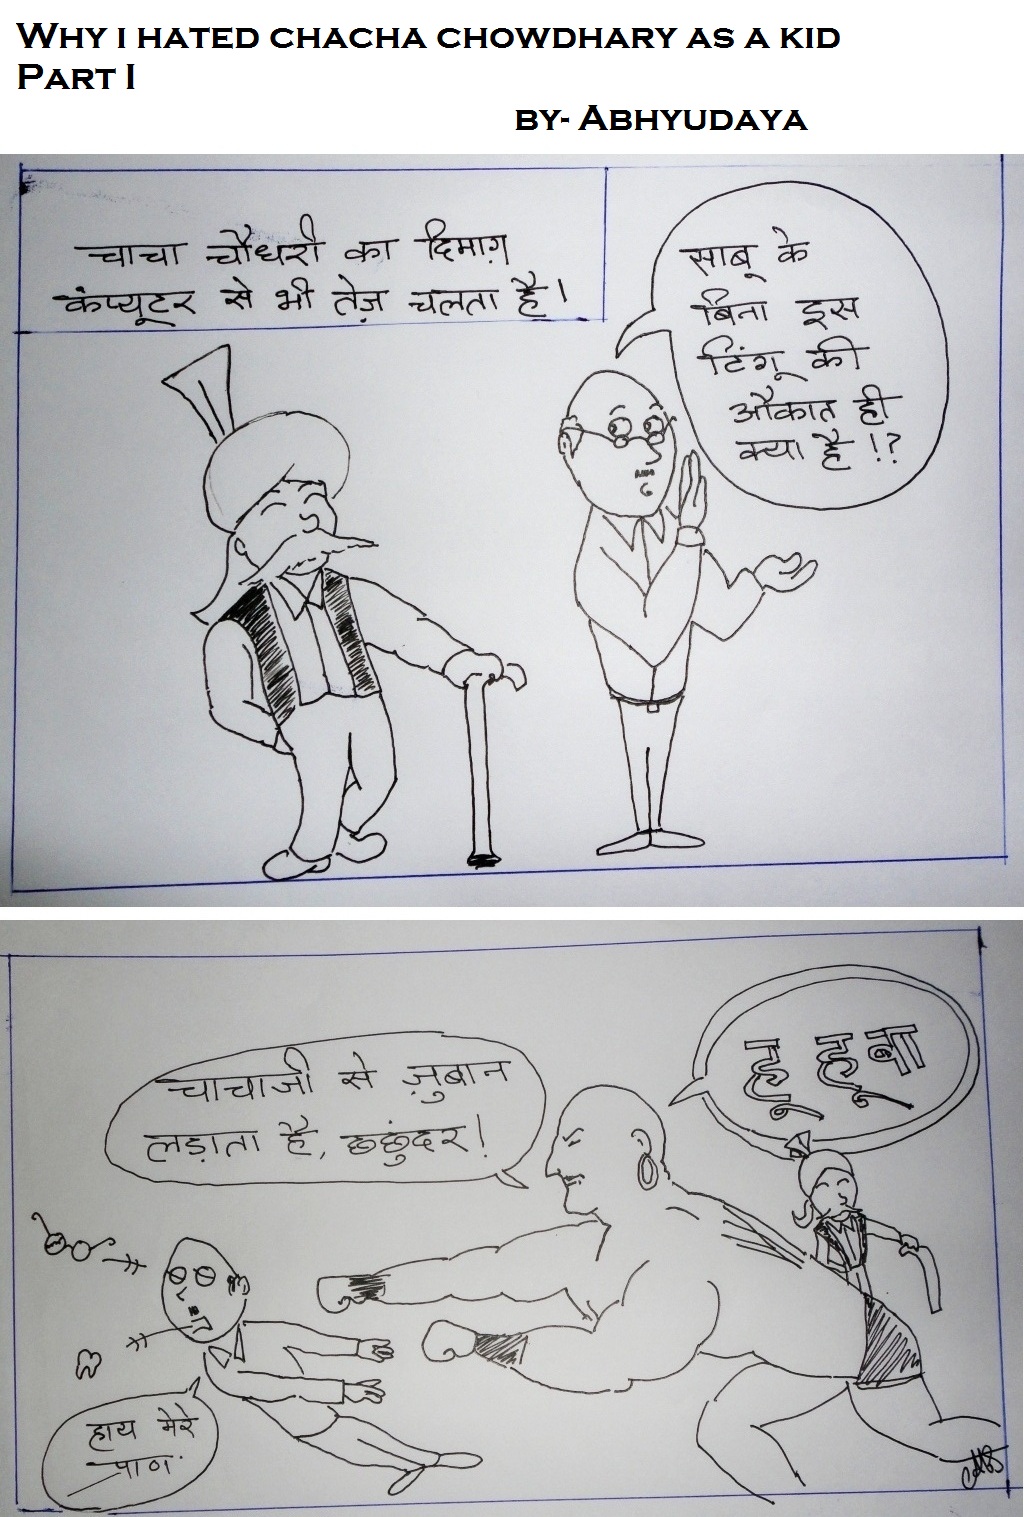 WHY I HATED CHACHA CHOWDHARY AS A KID
PART I
BY- ABHYUDAYA
चाचा चौधरी का दिमाग़
कंप्यूटर से भी तेज़ चलता है।
साबू के
बिना इस
टिंगू की
औकात ही
क्या है !?
चाचाजी से ज़ुबान
लड़ाता है, छछुंदर!
हू हूबा
हाय मेरे
प्राण